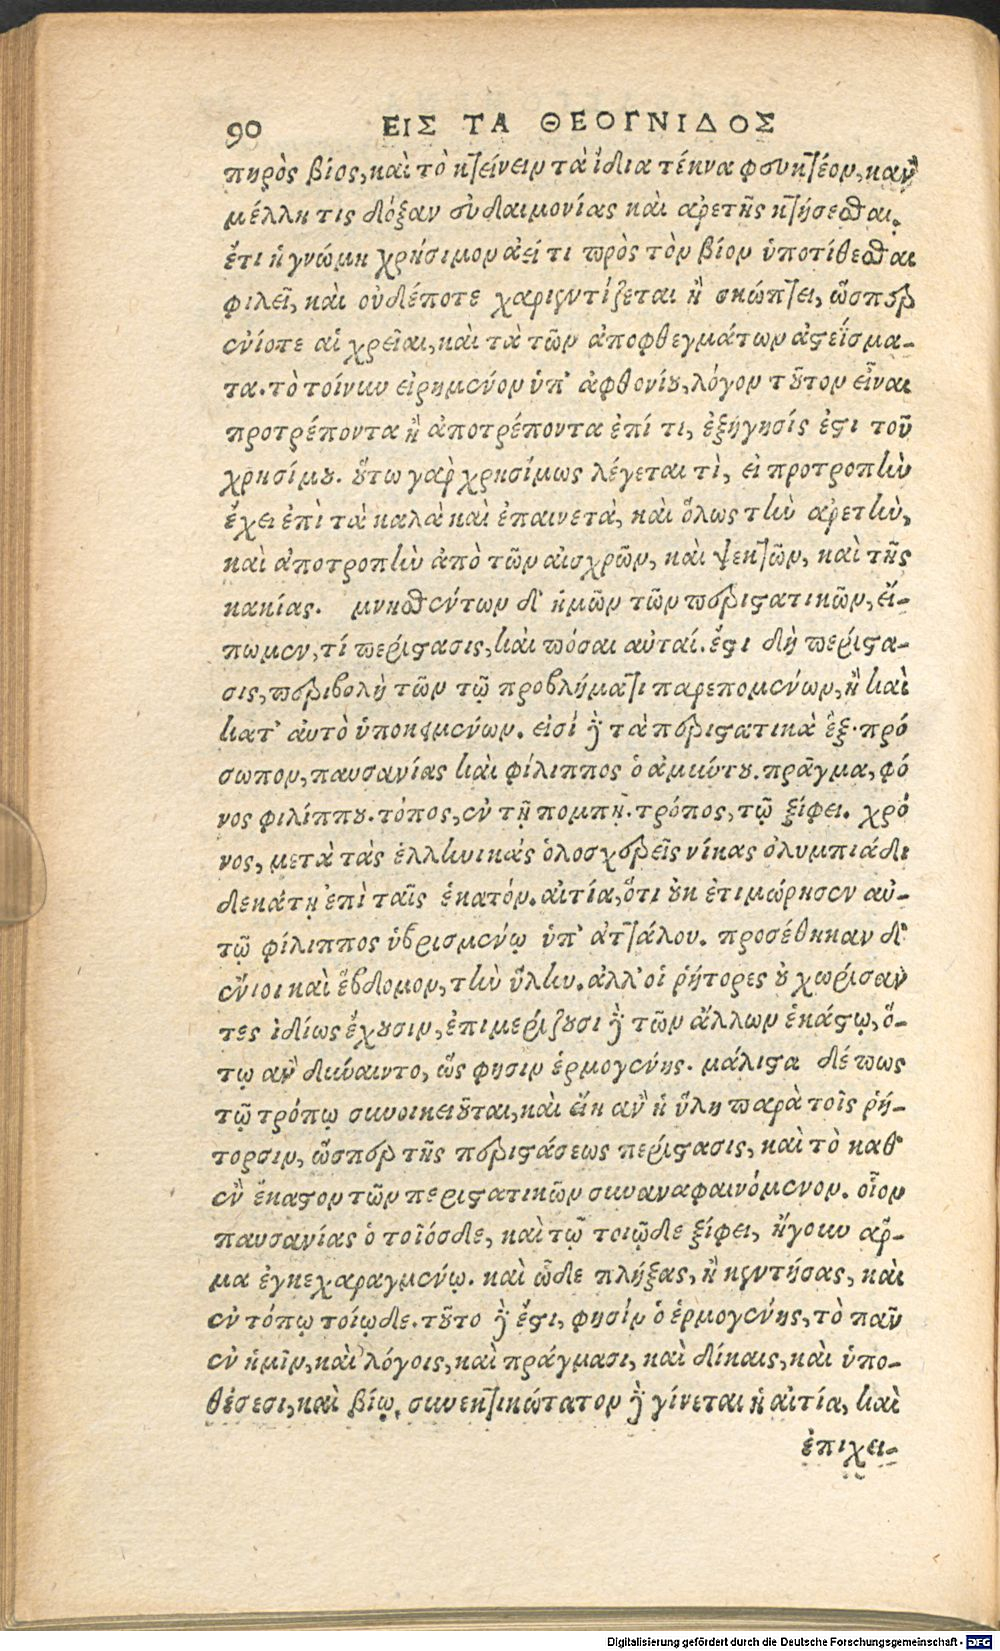 90 ΕΙΣ ΤΑ ΘΕΟΓΝΙΔΟΣ
πηρὸς βίος, καὶ τὸ κτείνειν τὰ ἴδια τέκνα φευκτέον, κἂν
μέλλῃ τις δόξαν εὐδαιμονίας καὶ ἀρετῆς κτήσεσθαι.
ἔτι ἡ γνώμη χρήσιμον ἀεί τι πρὸς τὸν βίον ὑποτίθεσθαι
φιλεῖ, καὶ οὐδέποτε χαριεντίζεται ἢ σκώπτει, ὥσπερ
ἐνίοτε αἱ χρεῖαι, καὶ τὰ τῶν ἀποφθεγμάτων ἀστεΐσμα-
τα. τὸ τοίνυν εἰρημένον ὑπ' ἀφθονίου, λόγον τοῦτον εἶναι
προτρέποντα ἢ ἀποτρέποντα ἐπί τι, ἐξήγησίς ἐστι τοῦ
χρησίμου. οὕτω γὰρ χρησίμως λέγεται τὶ, εἰ προτροπὴν
ἔχει ἐπὶ τὰ καλὰ καὶ ἐπαινετὰ, καὶ ὅλως τὴν ἀρετὴν,
καὶ ἀποτροπὴν ἀπὸ τῶν αἰσχρῶν, καὶ ψεκτῶν, καὶ τῆς
κακίας. μνησθέντων δ' ἡμῶν τῶν περιστατικῶν, εἴ-
πωμεν, τί περίστασις, καὶ πόσαι αὐταί. ἔστι δὴ περίστα-
σις, περιβολὴ τῶν τῷ προβλήματι παρεπομένων, ἢ καὶ
κατ' αὐτὸ ὑποκειμένων. εἰσί δὲ τὰ περιστατικὰ ἓξ· πρό
σωπον, παυσανίας καὶ φίλιππος ὁ ἀμύντου. πρᾶγμα, φό
νος φιλίππου. τόπος, ἐν τῇ πομπῇ. τρόπος, τῷ ξίφει. χρό
νος, μετὰ τὰς ἑλληνικὰς ὁλοσχερεῖς νίκας ὀλυμπιάδι
δεκάτῃ ἐπὶ ταῖς ἑκατόν. αἰτία, ὅτι οὐκ ἐτιμώρησεν αὐ-
τῷ φίλιππος ὑβρισμένῳ ὑπ' ἀττάλου. προσέθηκαν δ'
ἔνιοι καὶ ἕβδομον, τὴν ὕλην. ἀλλ' οἱ ῥήτορες οὐ χωρίσαν
τες ἰδίως ἔχουσιν, ἐπιμερίζουσι δὲ τῶν ἄλλων ἑκάστῳ, ὅ-
τῳ ἂν δύναιντο, ὥς φησιν ἑρμογένης. μάλιστα δέ πως
τῷ τρόπῳ συνοικειοῦται, καὶ εἴη ἂν ἡ ὕλη παρὰ τοῖς ῥή-
τορσιν, ὥσπερ τῆς περιστάσεως περίστασις, καὶ τὸ καθ'
ἓν ἕκαστον τῶν περιστατικῶν συναναφαινόμενον. οἷον
παυσανίας ὁ τοιόσδε, καὶ τῷ τοιῷδε ξίφει, ἤγουν ἅρ-
μα ἐγκεχαραγμένῳ. καὶ ὧδε πλήξας, ἢ κεντήσας, καὶ
ἐν τόπῳ τοίῳδε. τοῦτο δὲ ἔστι, φησίν ὁ ἑρμογένης, τὸ πᾶν
ἐν ἡμῖν, καὶ λόγοις, καὶ πράγμασι, καὶ δίκαις, καὶ ὑπο-
θέσεσι, καὶ βίῳ. συνεκτικώτατον δὲ γίνεται ἡ αἰτία, καὶ
ἐπιχει-
Digitalisierung gefördert durch die Deutsche Forschungsgemeinschaft - DFG